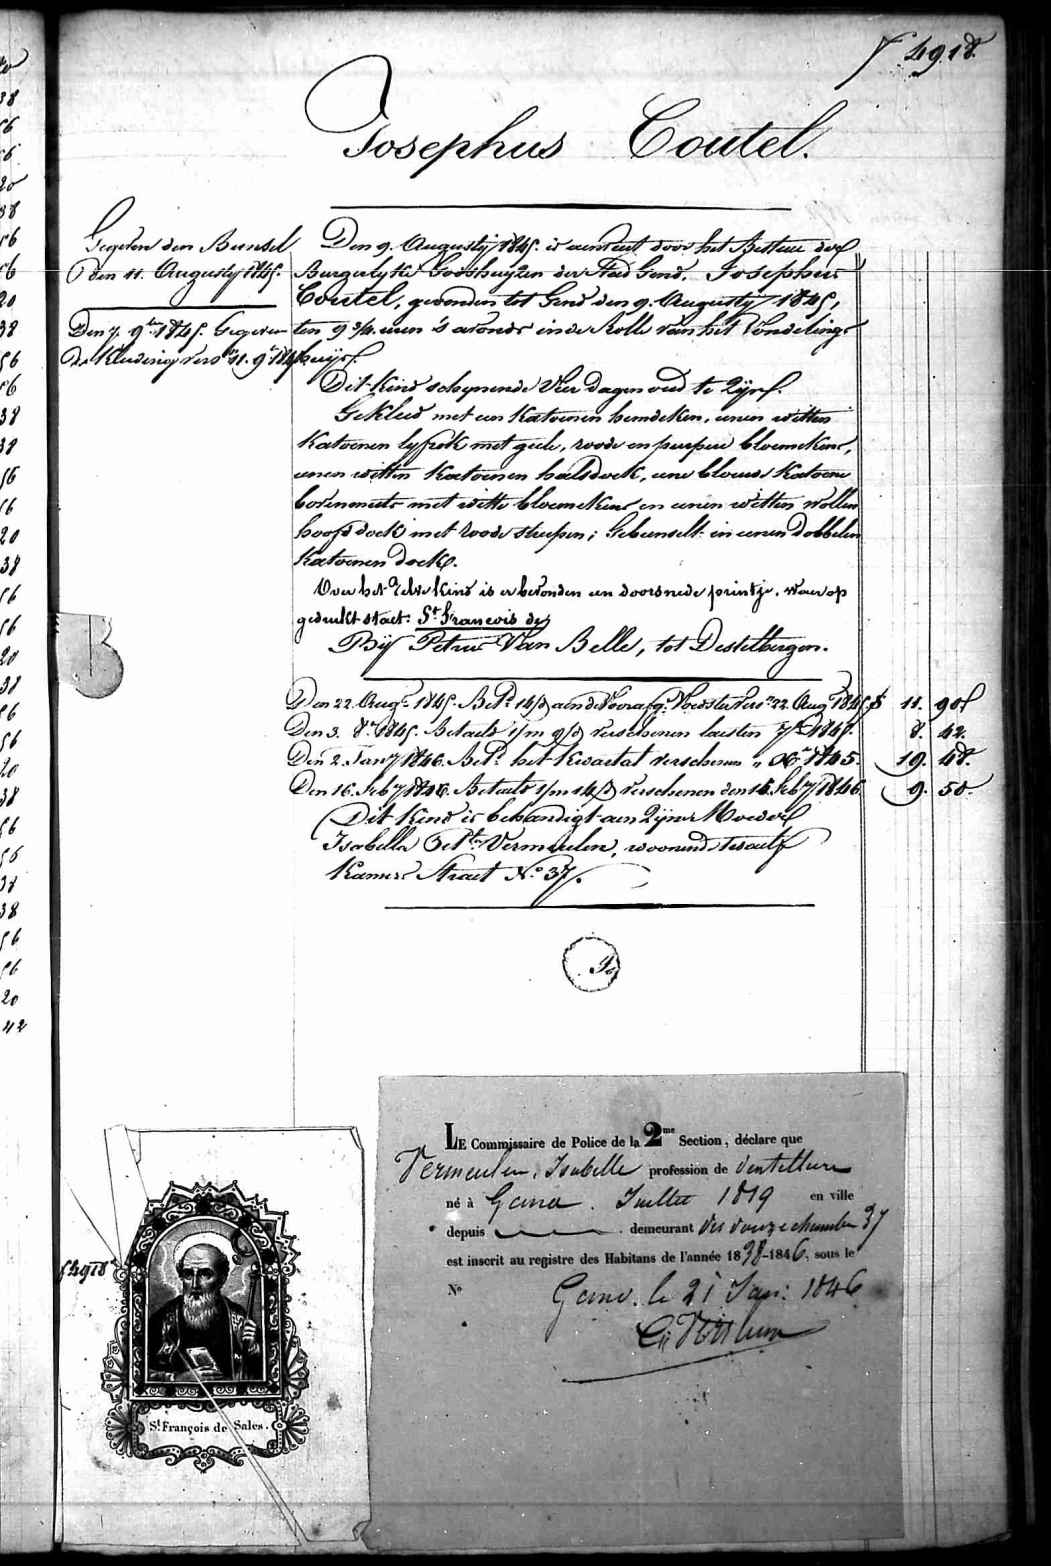 f° 4918.
Josephus Coutel.
Gegeven den Bunsel
den 11. Augusty 1845.
Den 7. 9ber 1845. Gegeven
de Kleeding vers
Den 9. Augusty 1845. is aenveerd door het Bestuer der
Burgerlyke Godshuyzen der Stad Gend, Josephus
Coutel, gevonden tot Gend den 9. Augusty 1845,
ten 9 3/4 uren 's avonds in de Rolle van het Vondelings
huys.
Dit kind schynende vier dagen oud te zyn.
Gekleed met een katoenen hemdeken, eenen witten
katoenen lyfrok met geele, roode en purpere bloemekens,
eenen witten katoenen halsdoek, eene blauwe katoene
bovenmuts met witte bloemekens en eenen witten wollen
hoofddoek met roode streepen; Gebunselt in eenen dobbelen
katoenen doek.
Over het zelve kind is er bevonden een doorsnede printje, waer op
gedrukt staet: St. Francois de
By Petrus Van Belle, tot Destelbergen.
Den 22. Augt. 1845. Bet. 14/d aen de Voorafg. Voedster vers. 22. Augt. 1845 f 11. 90
Den 3. 8er 1845. Betaeld 1/m 9/d verschenen laesten 7ber 1845. 8. 42.
Den 2. Jany 1846. Bet. het kwartael verschenen " Xber 1845. 19. 48.
Den 16. Feby 1846. Betaeld 1/m 14/d verschenen den 14. Feby 1846. 9. 50.
Dit kind is behandigt aen zyne Moeder
Isabella Vermeulen, woonende twaelf
Kamers Straet N° 37.
f° 4918
St. François de Sales.
LE Commissaire de Police de la 2me Section, déclare que
Vermeulen, Isabelle profession de dentelliere
né à Gand. Juillet 1819 en ville
depuis demeurant des douze chambres 37
est inscrit au registre des Habitans de l'année 1838-1846, sous le
N°
Gand, le 21 Jan: 1846